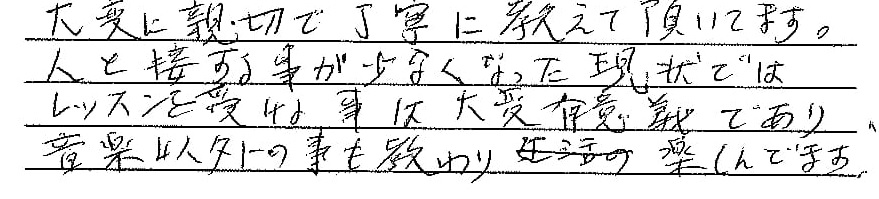 大変に親切で丁寧に教えて頂いてます。
人と接する事が少なくなった現状では
レッスンを受ける事は大変有意義であり、
音楽以外の事も教わり 楽しんでます